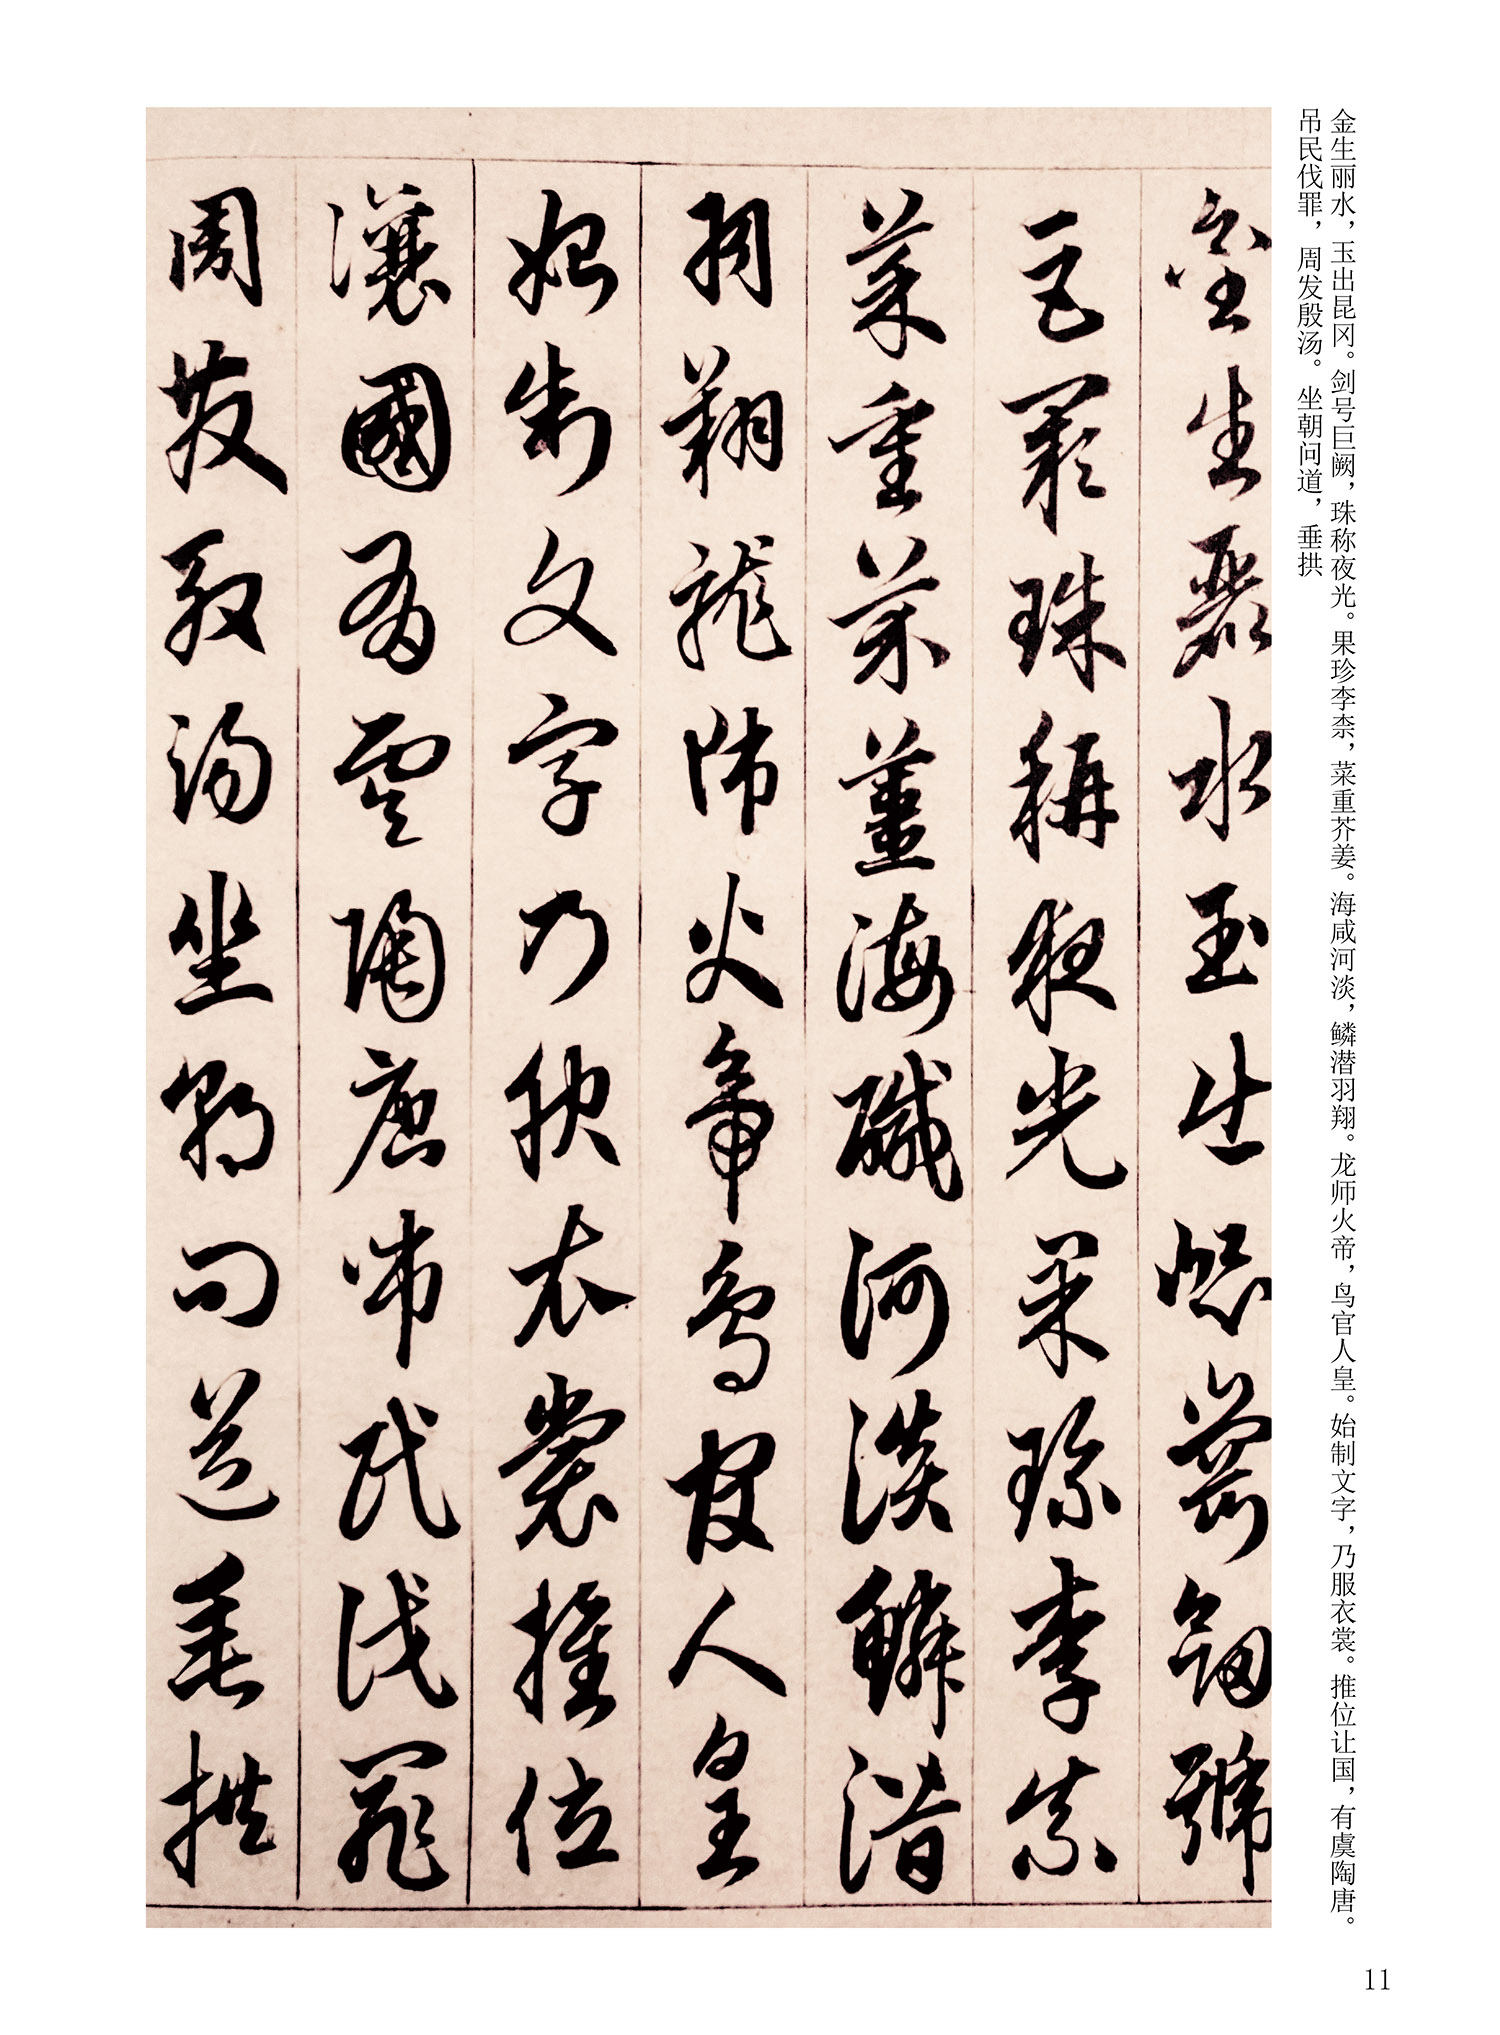 金生丽水，玉出昆冈。剑号巨阙，珠称夜光。果珍李柰，菜重芥姜。海咸河淡，鳞潜羽翔。龙师火帝，鸟官人皇。始制文字，乃服衣裳。推位让国，有虞陶唐。
吊民伐罪，周发殷汤。坐朝问道，垂拱
金生麗水玉出崑岡劒號
巨闕珠稱夜光果珍李柰
菜重芥薑海醎河淡鱗潛
羽翔龍師火帝鳥官人皇
始制文字乃服衣裳推位
讓國有虞陶唐弔民伐罪
周發殷湯坐朝問道垂拱
11